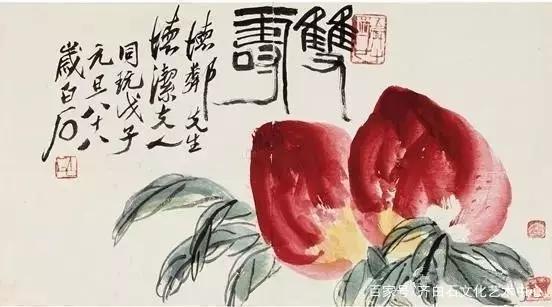 雙壽
懷鄰先生
懷潔夫人
同玩戊子
元旦八十八
歲白石
百家号/齐白石文化艺术中心